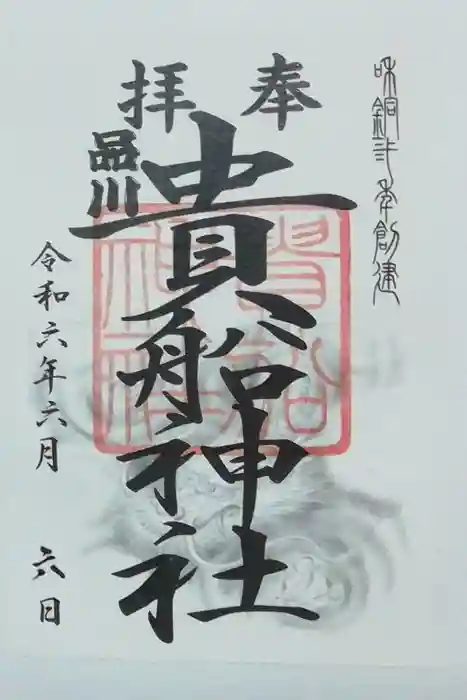 和銅弐年創建
奉拝
品川
貴船神社
令和六年六月六日